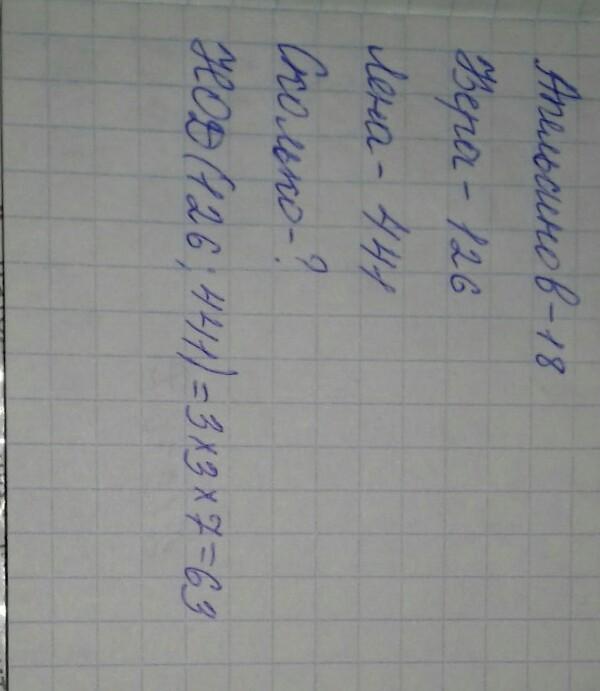 Апельсинов-18
Вера-126
Лена-441
Сколько-?
НОД(126;441)=3×3×7=63